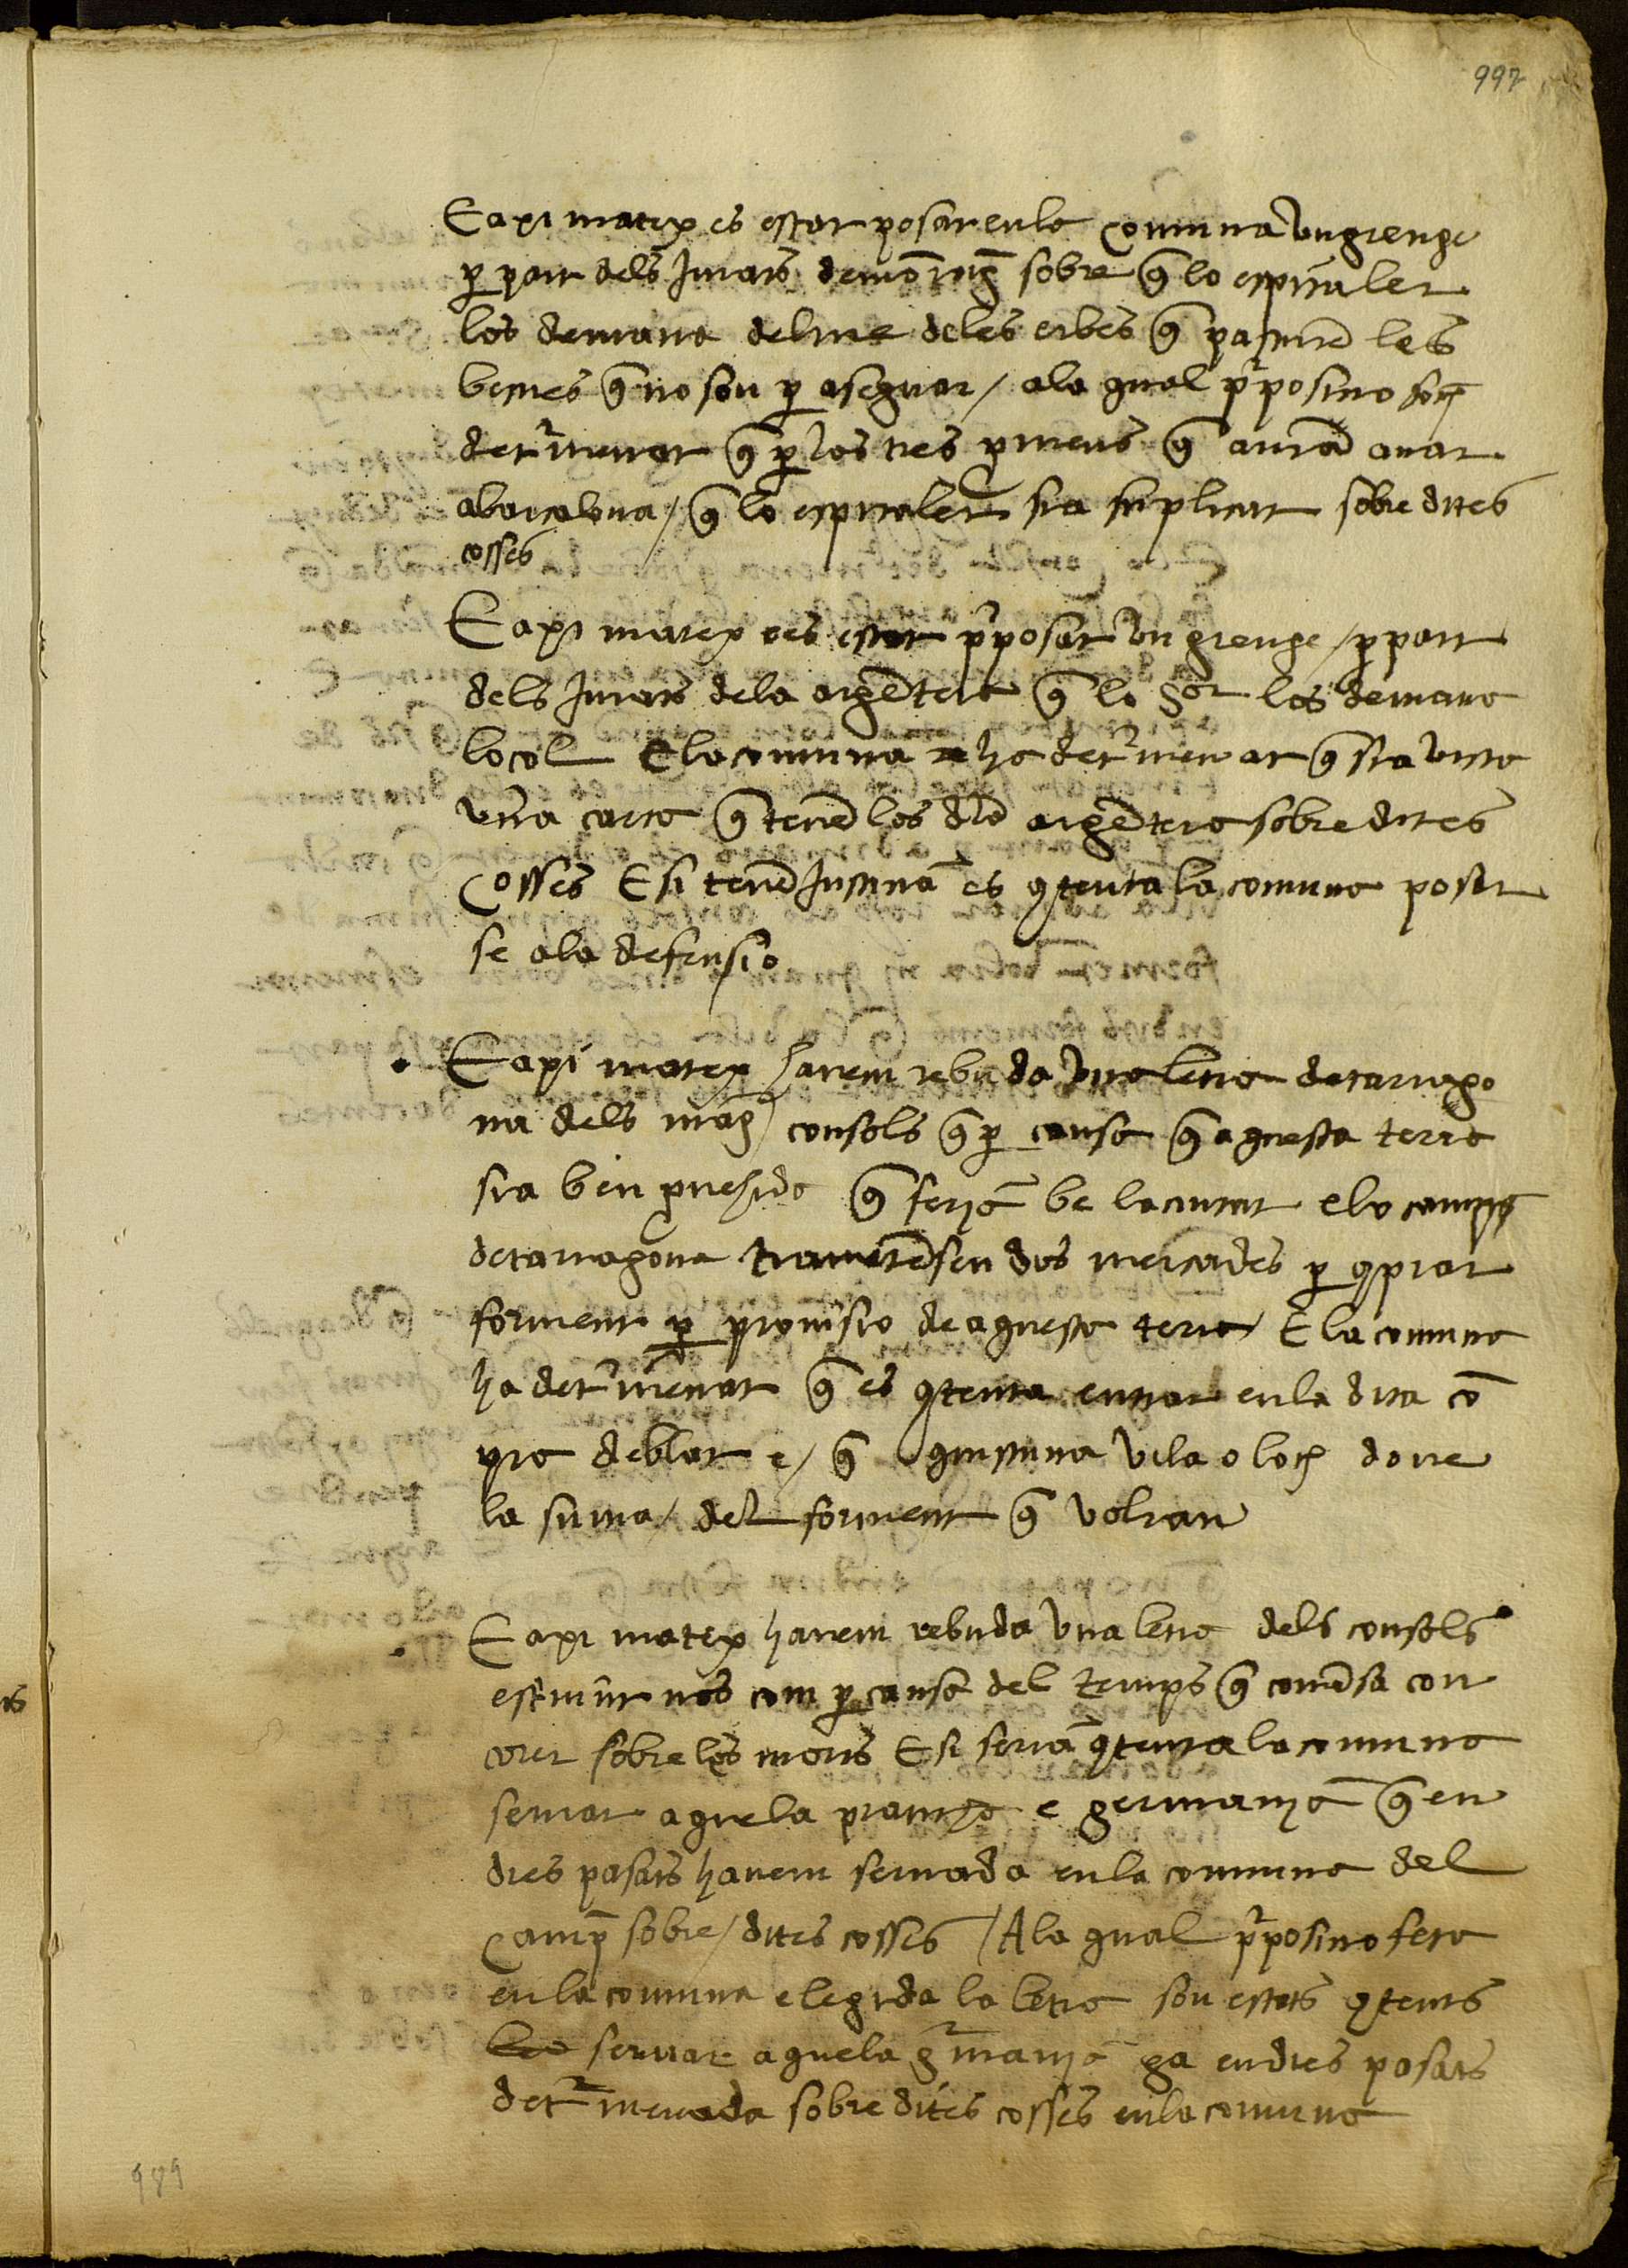 997
E axi matex es estat posat en la comuna un greuge
per part dels Jurats de montroig sobre que lo espitaler
los demana delme de les erbes que pasture les
besties que no son per aseguar / a la qual proposicio fonch
determenat que per los tres primers que auran anar
a barcalona / que lo espitaler sia suplicat sobre dites
cosses
E axi matex es estat proposat un greuge / per part
dels Jurats de la argentera que lo Sor los demana
lo col E la comuna ha determenat que sia vista
una carta que tenen los de la argentera sobre dites
cosses E si tenen Justicia es contenta la comuna posar
se a la defensio
E axi matex havem rebuda una letra de tarrago
na dels magchs consols que per causa que aquesta terra
sia ben prouehida que serie be la ciutat e lo camp
de tarragona trametesen dos mercades per comprar
forment per prouisio de aquesta terra / E la comuna
ha determenat que es contenta entrar en la dita com
pra de blat e / que quiscuna vila o loch done
la suma / del forment que volran
E axi matex havem rebuda una letra dels consols
escriuint nos com per causa del temps que comensa con
corer sobre les morts E si seria contenta la comuna
seruar aquela pratica e germania que en
dies pasats havem seruada en la comuna del
Camp sobre / dites cosses / A la qual proposicio feta
en la comuna e legida la letra son estats contents
seruar aquela germania ga en dies pasats
determenada sobre dites cosses en la comuna
989